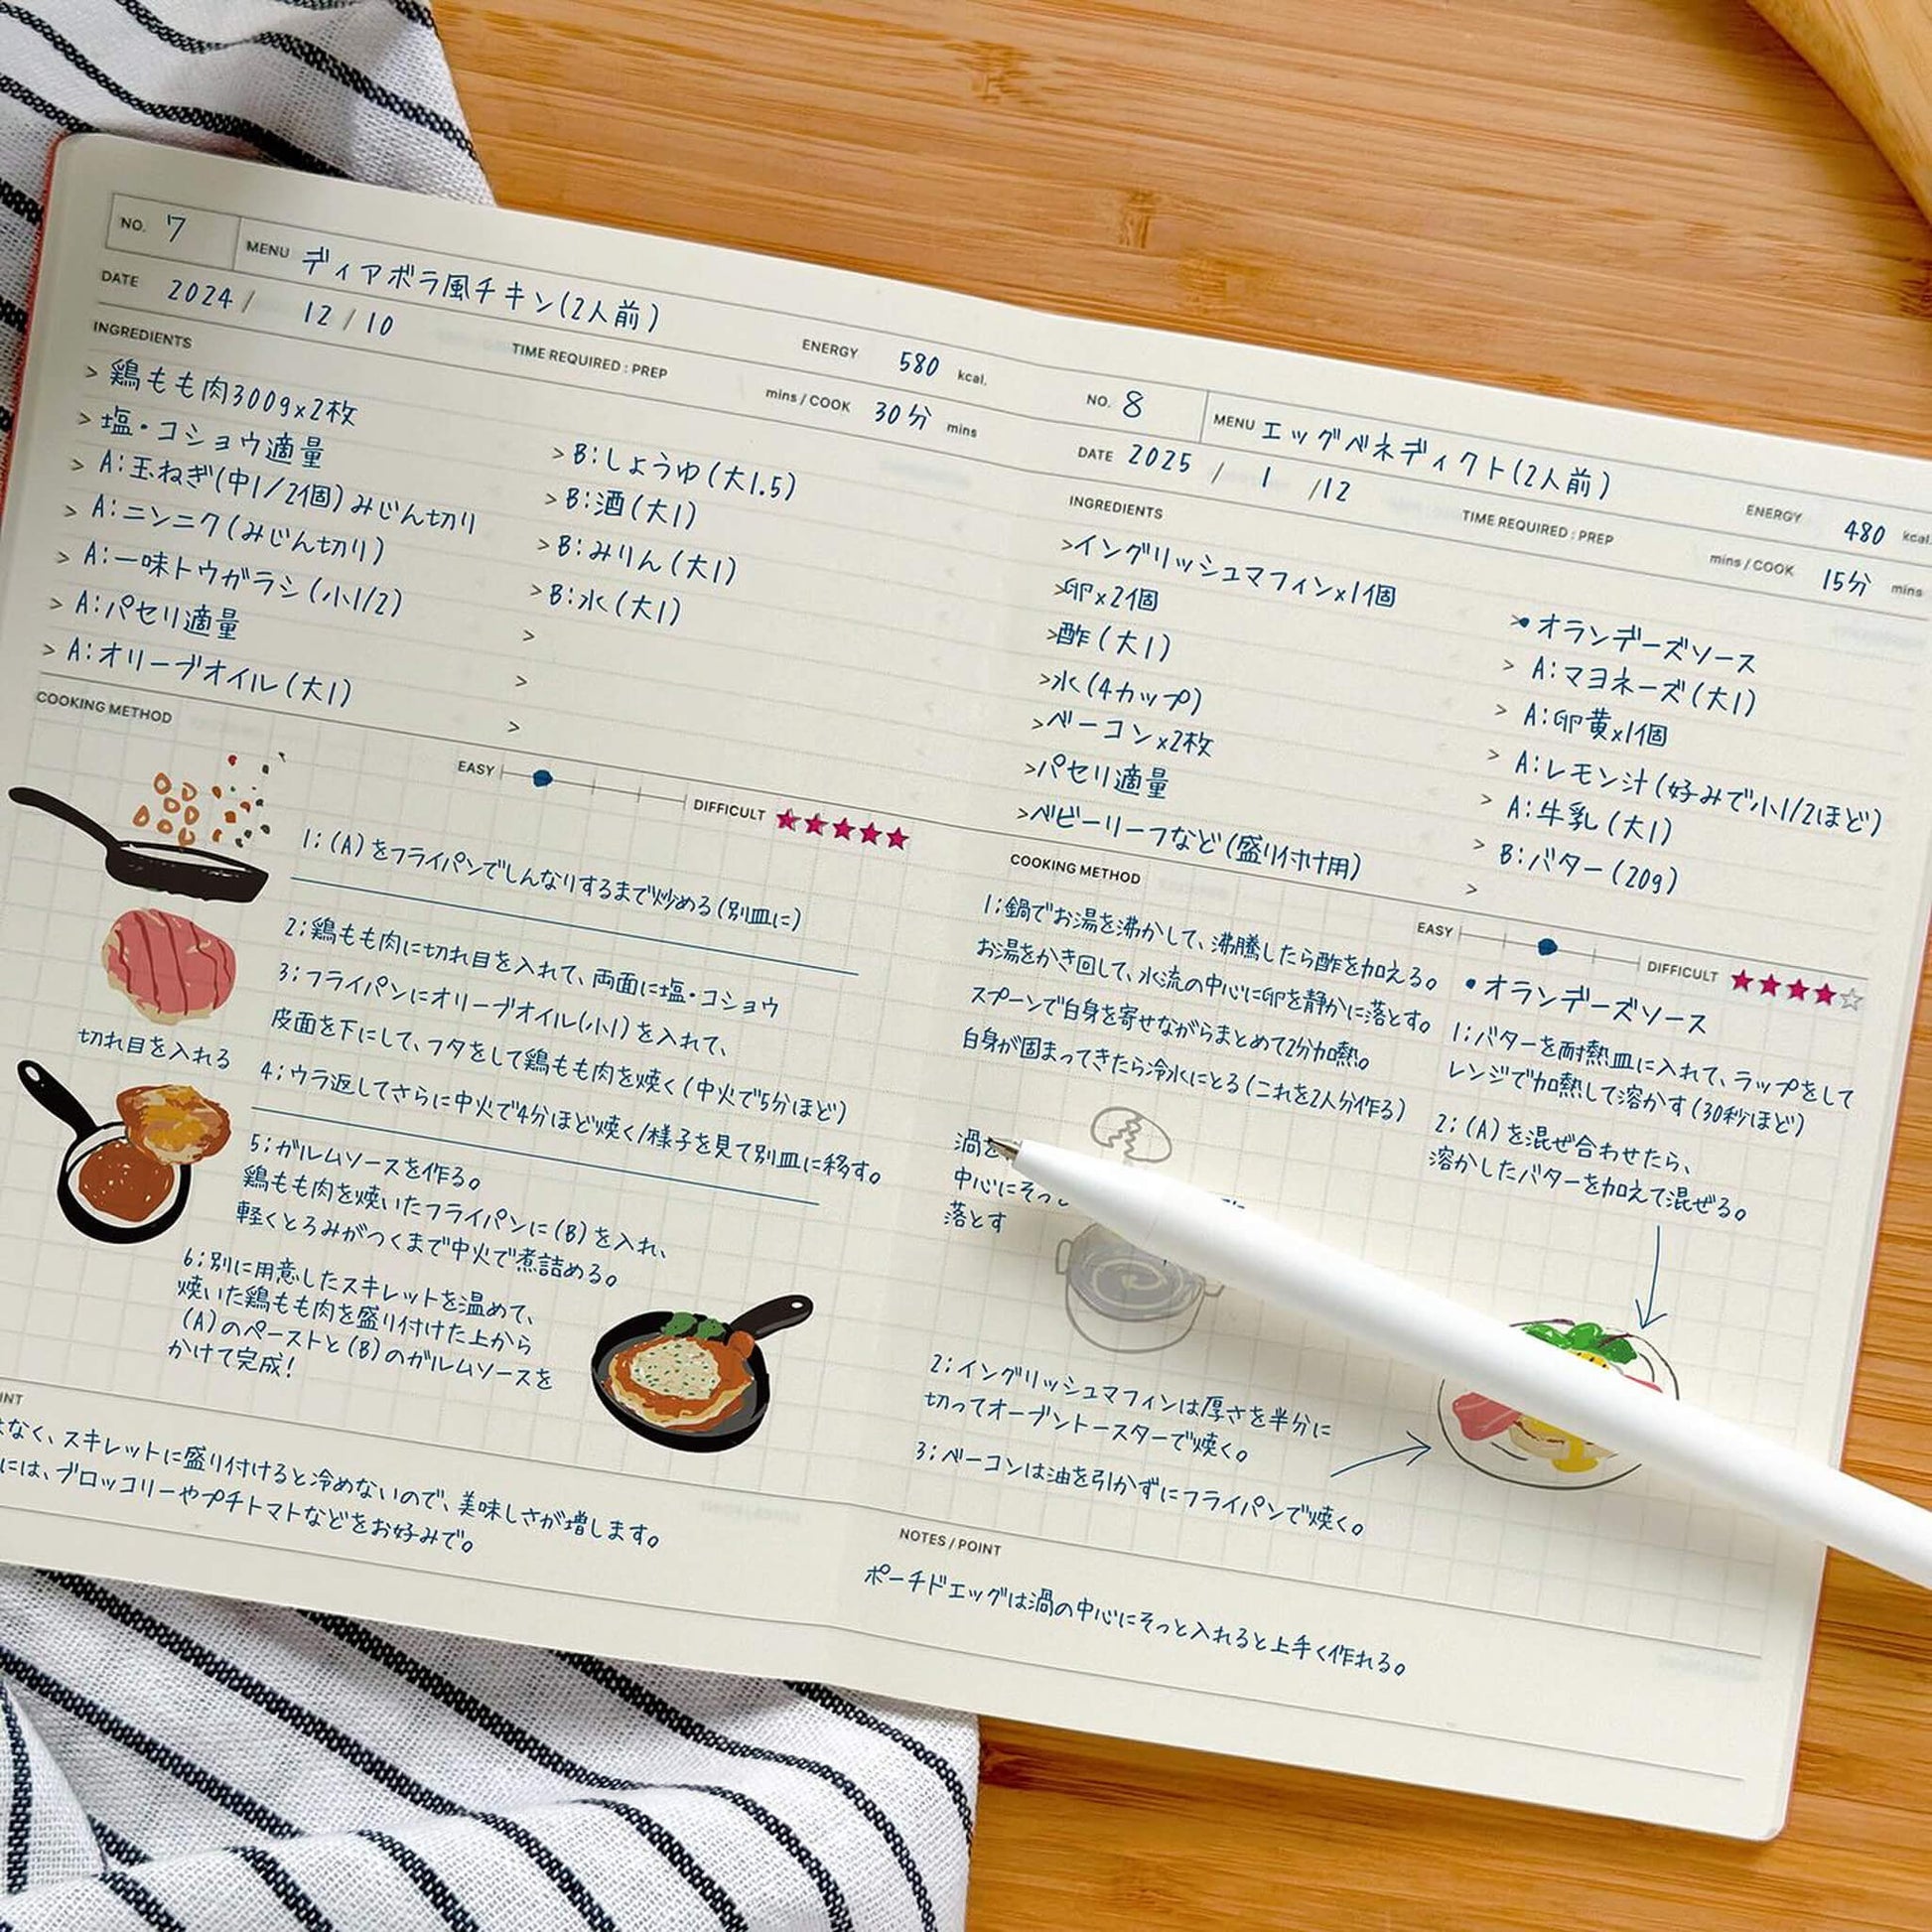 NO. 7
MENU ディアボラ風チキン(2人前)
DATE 2024 / 12 / 10
ENERGY 580 kcal.
INGREDIENTS
TIME REQUIRED : PREP mins / COOK 30分 mins
> 鶏もも肉300g×2枚
> 塩・コショウ適量
> A:玉ねぎ(中1/2個)みじん切り
> A:ニンニク(みじん切り)
> A:一味トウガラシ(小1/2)
> A:パセリ適量
> A:オリーブオイル(大1)
> B:しょうゆ(大1.5)
> B:酒(大1)
> B:みりん(大1)
> B:水(大1)
>
>
>
COOKING METHOD
EASY DIFFICULT ★★★★★
1:(A)をフライパンでしんなりするまで炒める(別皿に)
2:鶏もも肉に切れ目を入れて、両面に塩・コショウ
3:フライパンにオリーブオイル(小1)を入れて、
皮面を下にして、フタをして鶏もも肉を焼く(中火で5分ほど)
切れ目を入れる
4:ウラ返してさらに中火で4分ほど焼く/様子を見て別皿に移す。
5:ガルムソースを作る。
鶏もも肉を焼いたフライパンに(B)を入れ、
軽くとろみがつくまで中火で煮詰める。
6:別に用意したスキレットを温めて、
焼いた鶏もも肉を盛り付けた上から
(A)のペーストと(B)のガルムソースを
かけて完成!
INT
なく、スキレットに盛り付けると冷めないので、美味しさが増します。
には、ブロッコリーやプチトマトなどをお好みで。
NO. 8
MENU エッグベネディクト(2人前)
DATE 2025 / 1 / 12
ENERGY 480 kcal.
INGREDIENTS
TIME REQUIRED : PREP mins / COOK 15分 mins
>イングリッシュマフィン×1個
>卵×2個
>酢(大1)
>水(4カップ)
>ベーコン×2枚
>パセリ適量
>ベビーリーフなど(盛り付け用)
•オランデーズソース
> A:マヨネーズ(大1)
> A:卵黄×1個
> A:レモン汁(好みで小1/2ほど)
> A:牛乳(大1)
> B:バター(20g)
>
COOKING METHOD
EASY DIFFICULT ★★★★☆
1:鍋でお湯を沸かして、沸騰したら酢を加える。
お湯をかき回して、水流の中心に卵を静かに落とす。
スプーンで白身を寄せながらまとめて2分加熱。
白身が固まってきたら冷水にとる(これを2人分作る)
渦を
中心にそっと
落とす
2:イングリッシュマフィンは厚さを半分に
切ってオーブントースターで焼く。
3:ベーコンは油を引かずにフライパンで焼く。
•オランデーズソース
1:バターを耐熱皿に入れて、ラップをして
レンジで加熱して溶かす(30秒ほど)
2:(A)を混ぜ合わせたら、
溶かしたバターを加えて混ぜる。
NOTES / POINT
ポーチドエッグは渦の中心にそっと入れると上手く作れる。